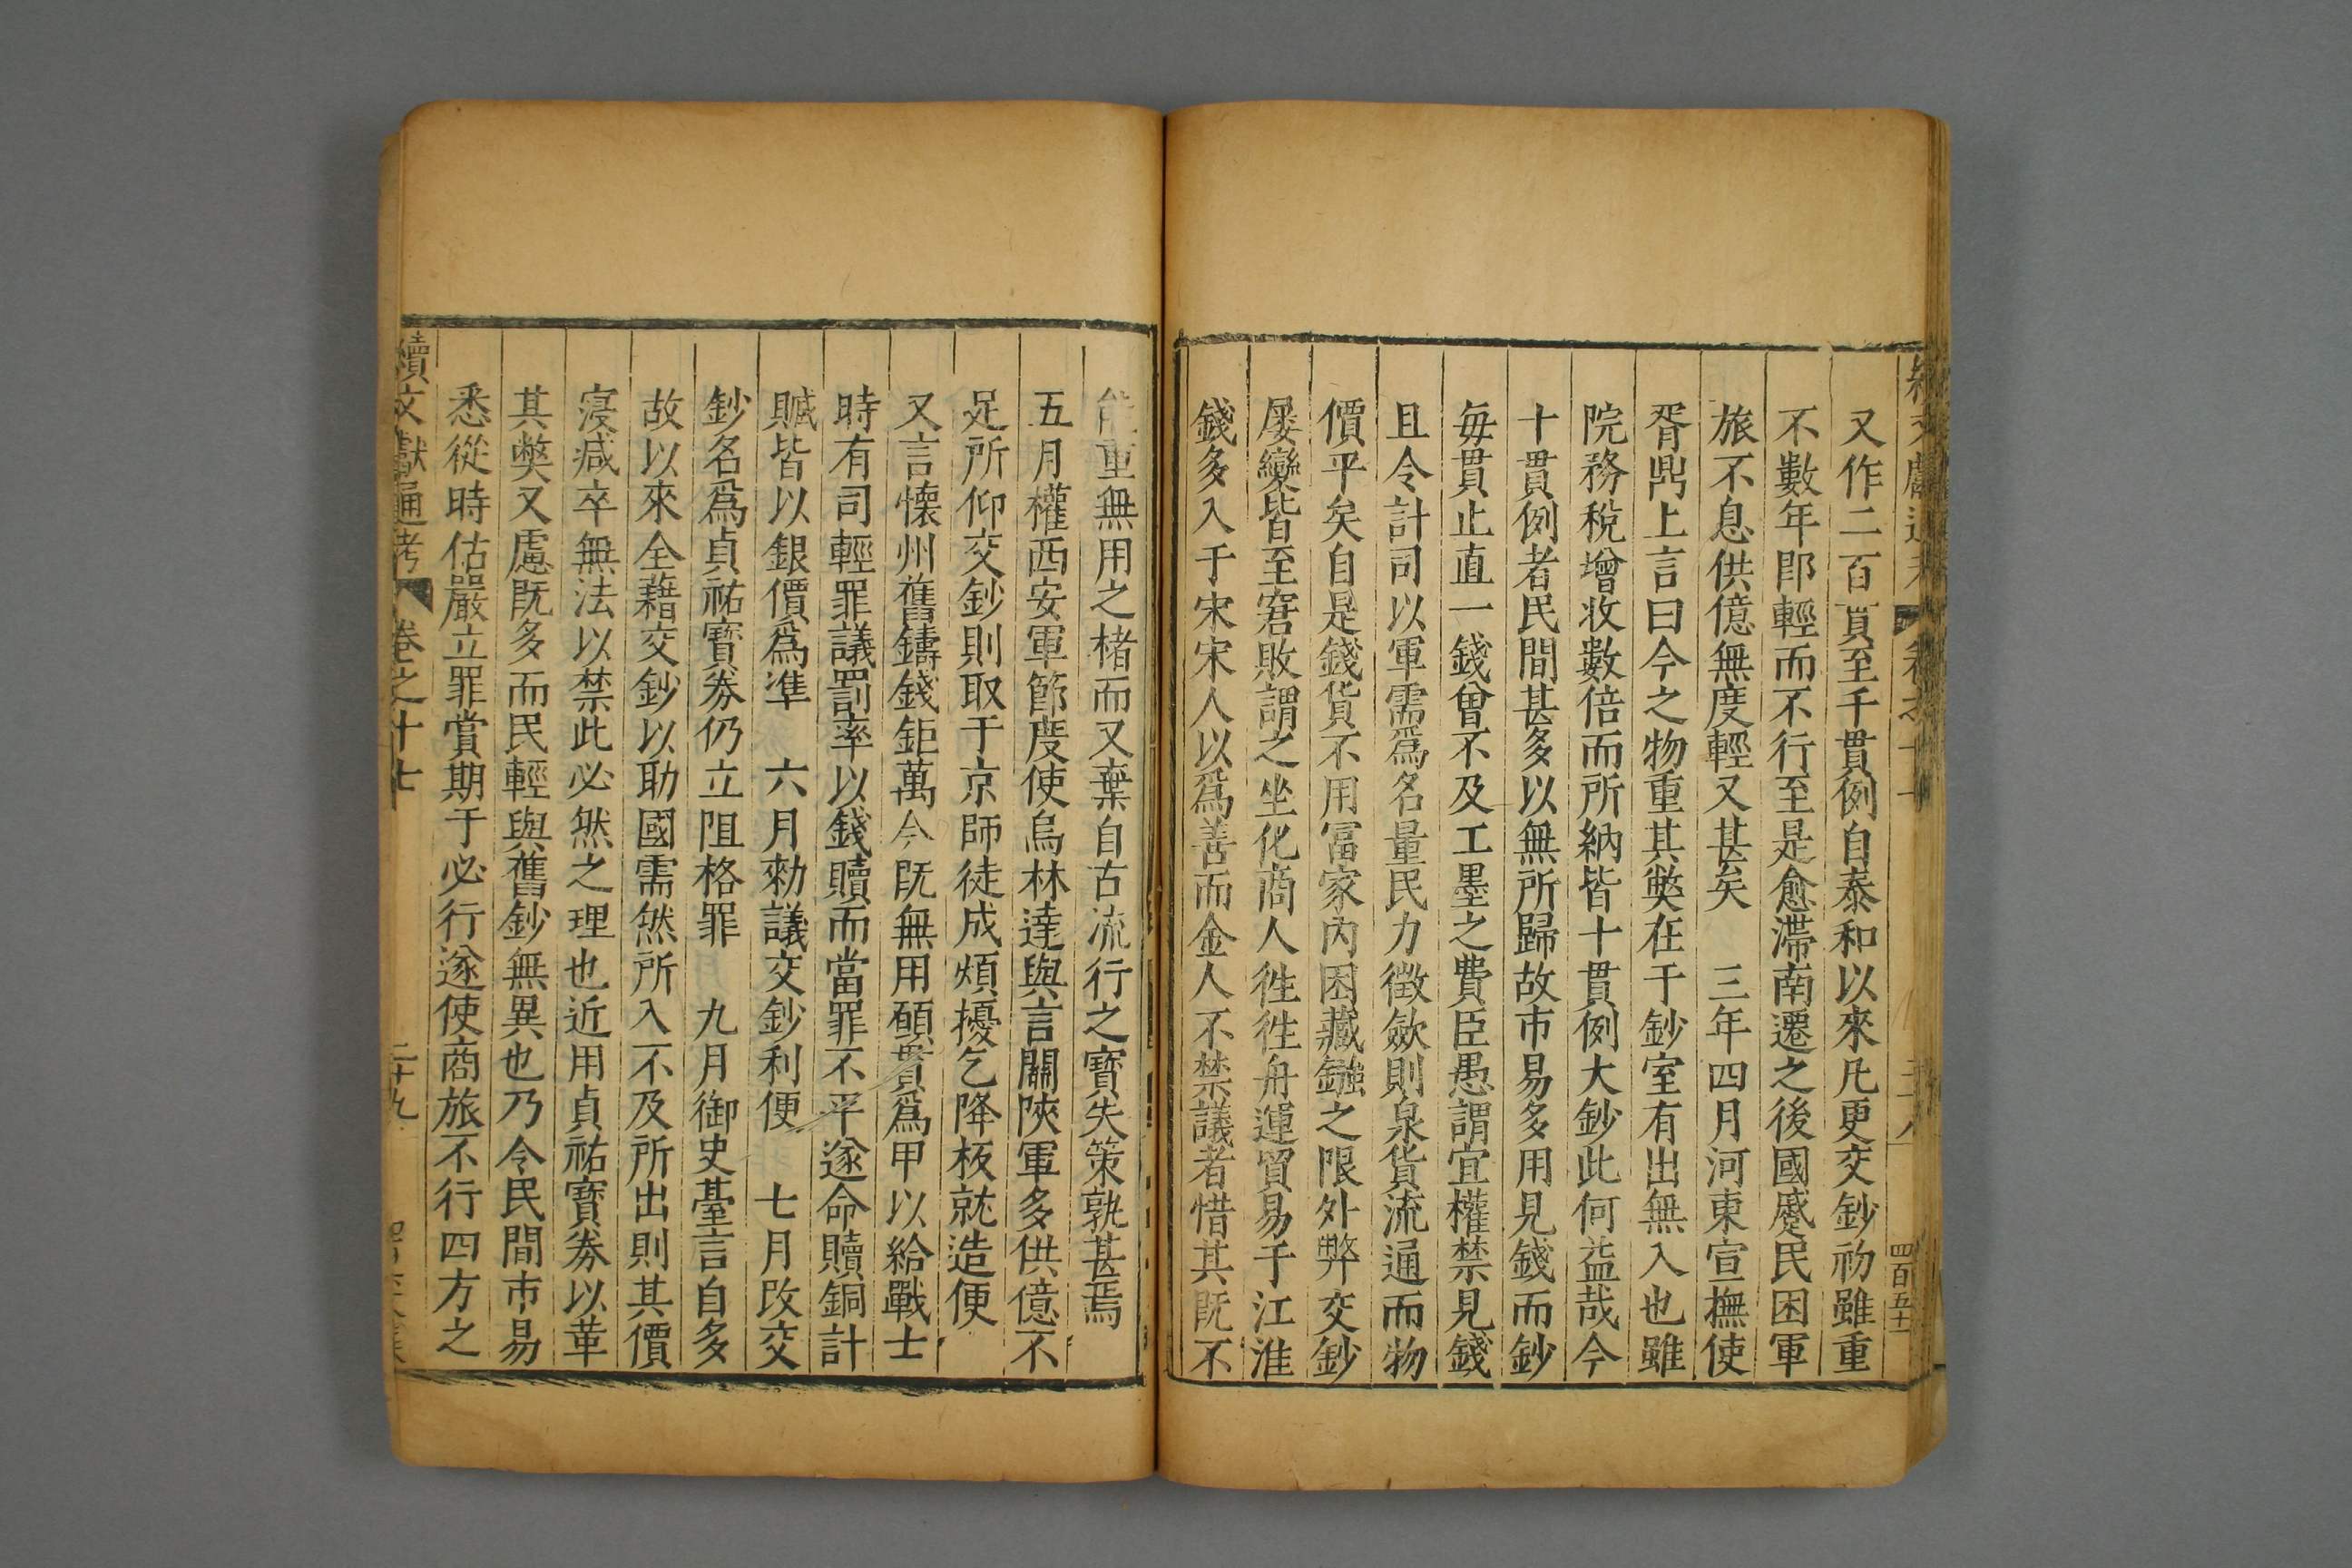 又作二百貫至千貫例自泰和以來凡更交鈔初雖重
不數年即輕而不行至是愈滯南遷之後國蹙民困軍
旅不息供億無度輕又甚矣　三年四月河東宣撫使
胥鼎上言曰今之物重其弊在于鈔室有出無入也雖
院務稅增收數倍而所納皆十貫例大鈔此何益哉今
十貫例者民間甚多以無所歸故市易多用見錢而鈔
每貫止直一錢曾不及工墨之費臣愚謂宜權禁見錢
且令計司以軍需爲名量民力徵歛則泉貨流通而物
價平矣自是錢貨不用富家內困藏鏹之限外弊交鈔
屡變皆至窘敗謂之坐化商人徃徃舟運貿易于江淮
錢多入于宋宋人以爲善而金人不禁議者惜其既不
能重無用之楮而又棄自古流行之寳失策孰甚焉
五月權西安軍節度使烏林達與言關陜軍多供億不
足所仰交鈔則取于京師徒成煩擾乞降板就造便
又言懷州舊鑄錢鉅萬今既無用願貫爲甲以給戰士
時有司輕罪議罰率以錢贖而當罪不平遂命贖銅計
贓皆以銀價爲准　六月勑議交鈔利便　七月改交
鈔名爲貞祐寳券仍立阻格罪　九月御史臺言自多
故以來全藉交鈔以助國需然所入不及所出則其價
寖减卒無法以禁此必然之理也近用貞祐寳券以革
其獘又慮既多而民輕與舊鈔無異也乃令民間市易
悉從時估嚴立罪賞期于必行遂使商旅不行四方之
續文獻通考　卷之十七　二十九